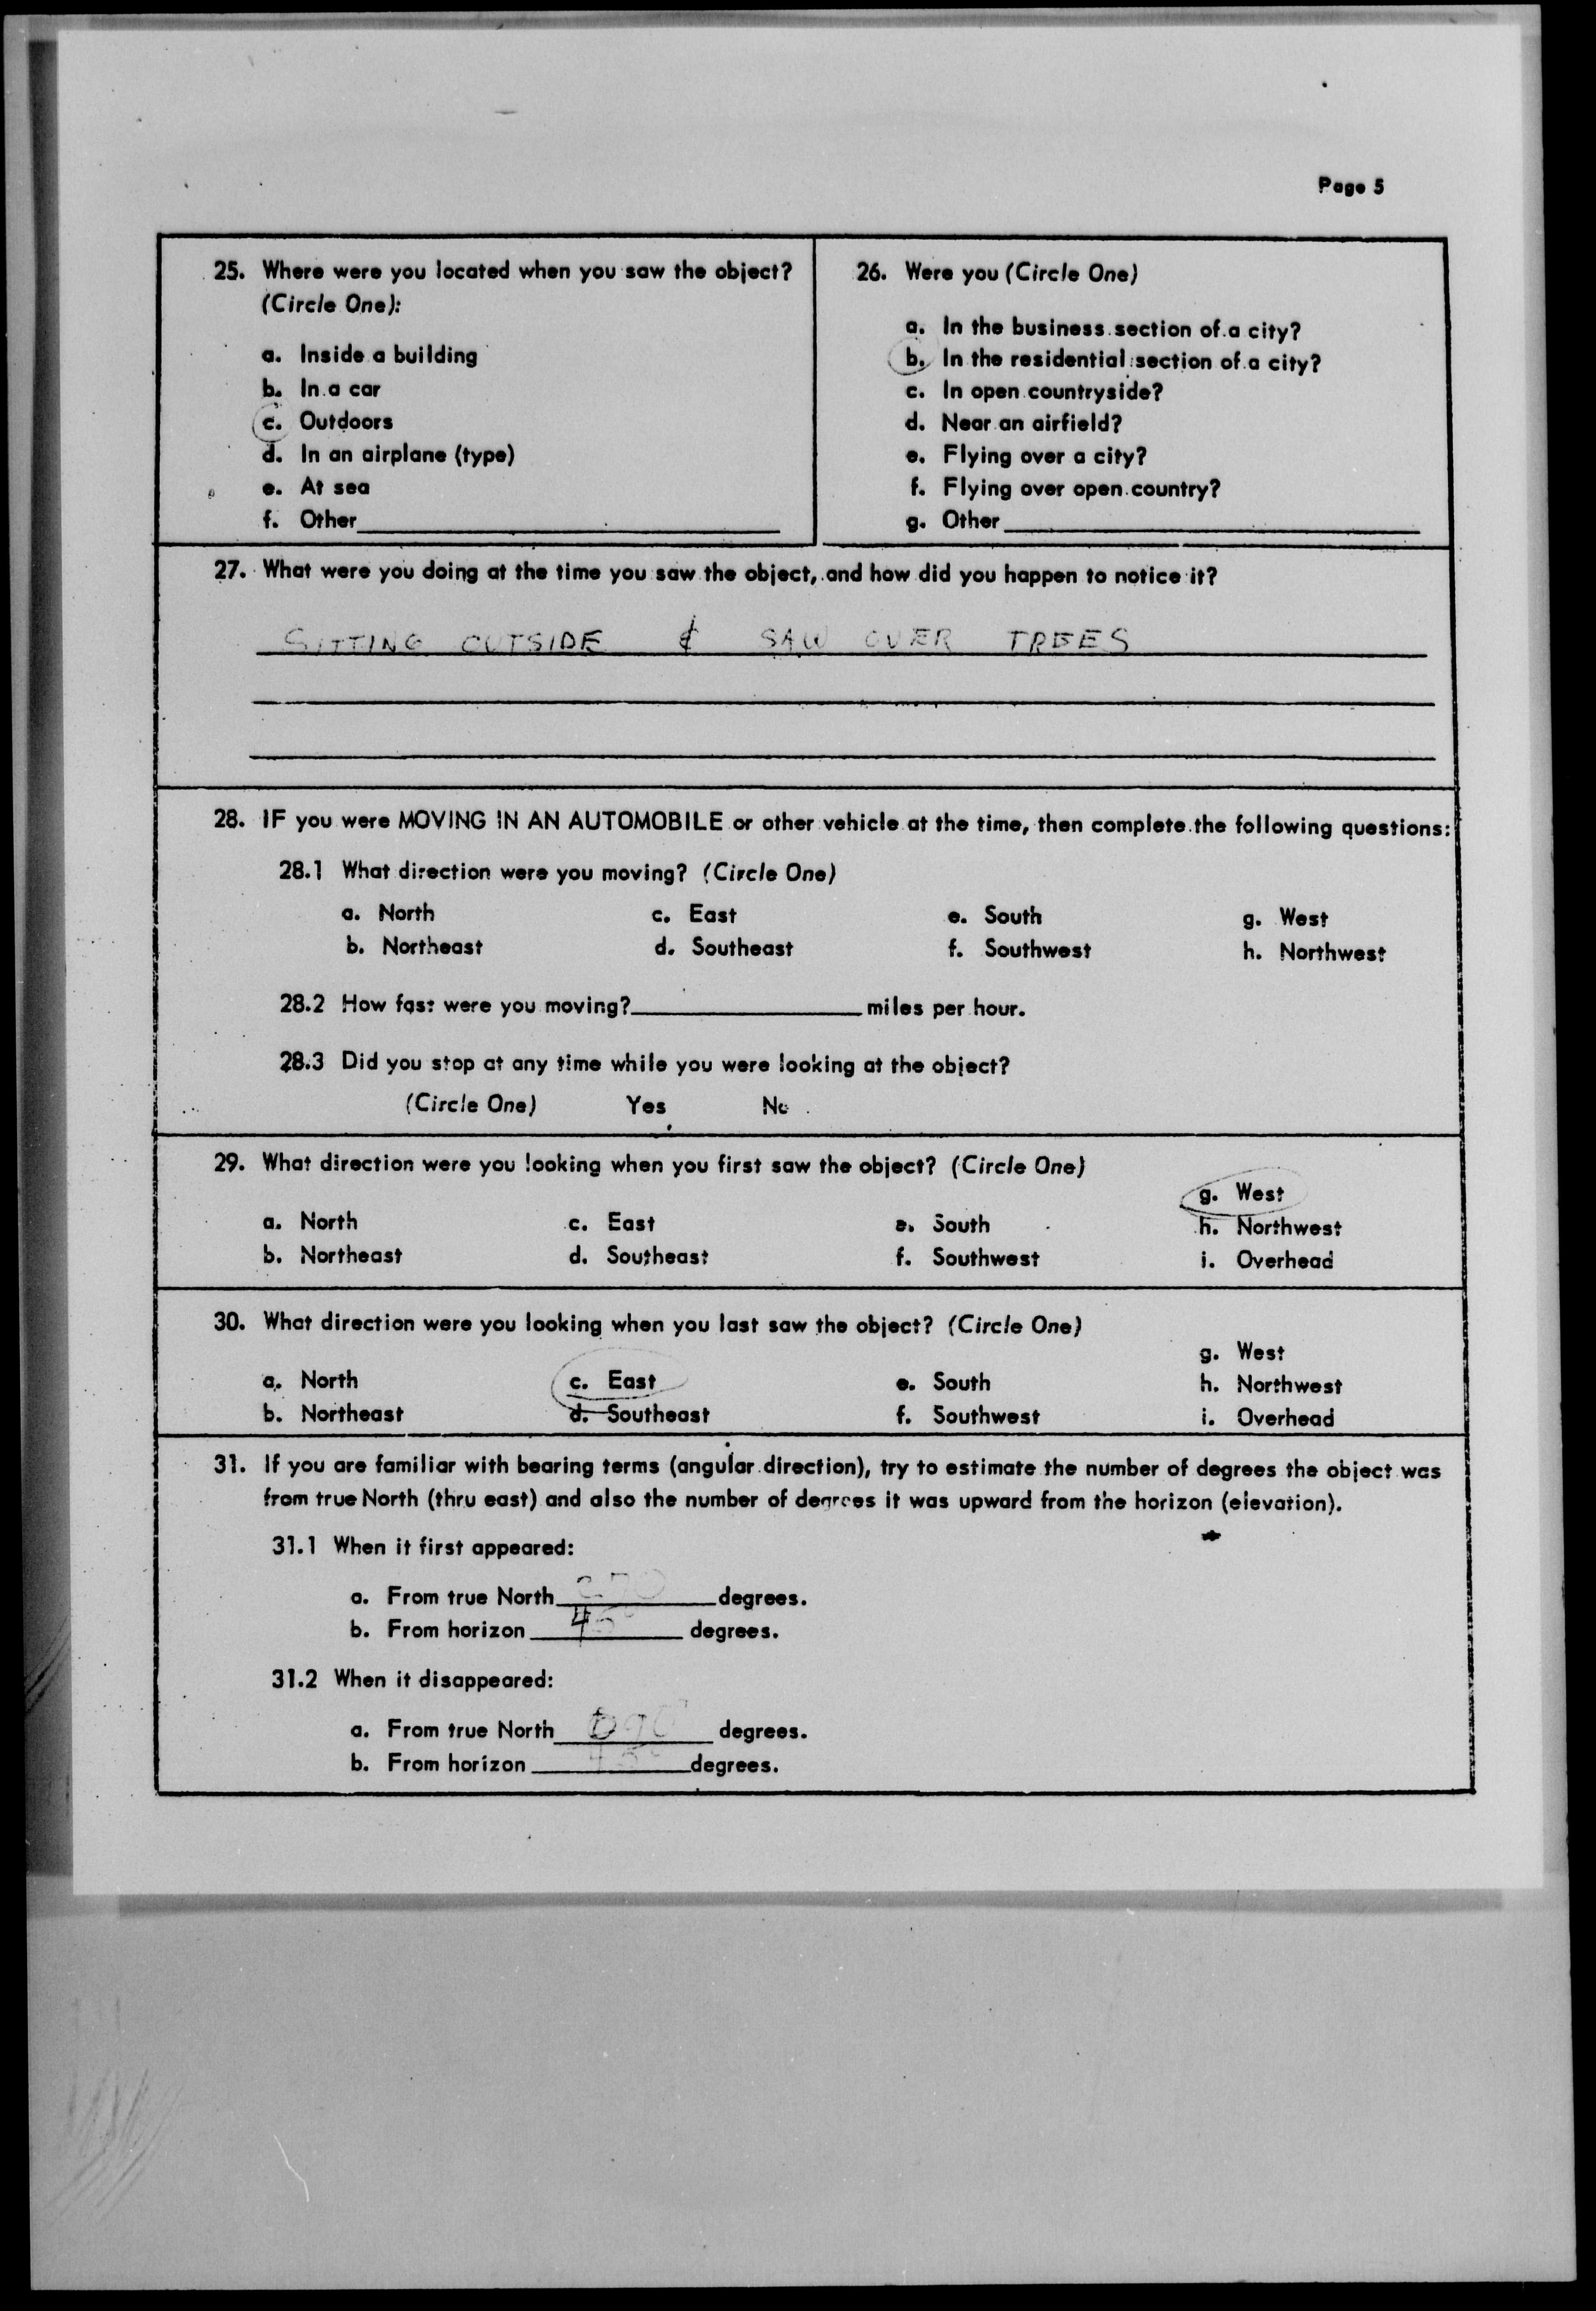 Page 5
25. Where were you located when you saw the object?
(Circle One):
a. Inside a building
b. In a car
c. Outdoors
d. In an airplane (type)
e. At sea
f. Other
26. Were you (Circle One)
a. In the business section of a city?
b. In the residential section of a city?
c. In open countryside?
d. Near an airfield?
e. Flying over a city?
f. Flying over open country?
g. Other
27. What were you doing at the time you saw the object, and how did you happen to notice it?
SITTING OUTSIDE & SAW OVER TREES
28. IF you were MOVING IN AN AUTOMOBILE or other vehicle at the time, then complete the following questions:
28.1 What direction were you moving? (Circle One)
a. North c. East e. South g. West
b. Northeast d. Southeast f. Southwest h. Northwest
28.2 How fast were you moving? miles per hour.
28.3 Did you stop at any time while you were looking at the object?
(Circle One) Yes No
29. What direction were you looking when you first saw the object? (Circle One)
g. West
a. North c. East e. South h. Northwest
b. Northeast d. Southeast f. Southwest i. Overhead
30. What direction were you looking when you last saw the object? (Circle One)
g. West
a. North c. East e. South h. Northwest
b. Northeast d. Southeast f. Southwest i. Overhead
31. If you are familiar with bearing terms (angular direction), try to estimate the number of degrees the object was
from true North (thru east) and also the number of degrees it was upward from the horizon (elevation).
31.1 When it first appeared:
a. From true North 270 degrees.
b. From horizon 45° degrees.
31.2 When it disappeared:
a. From true North 090 degrees.
b. From horizon 45° degrees.